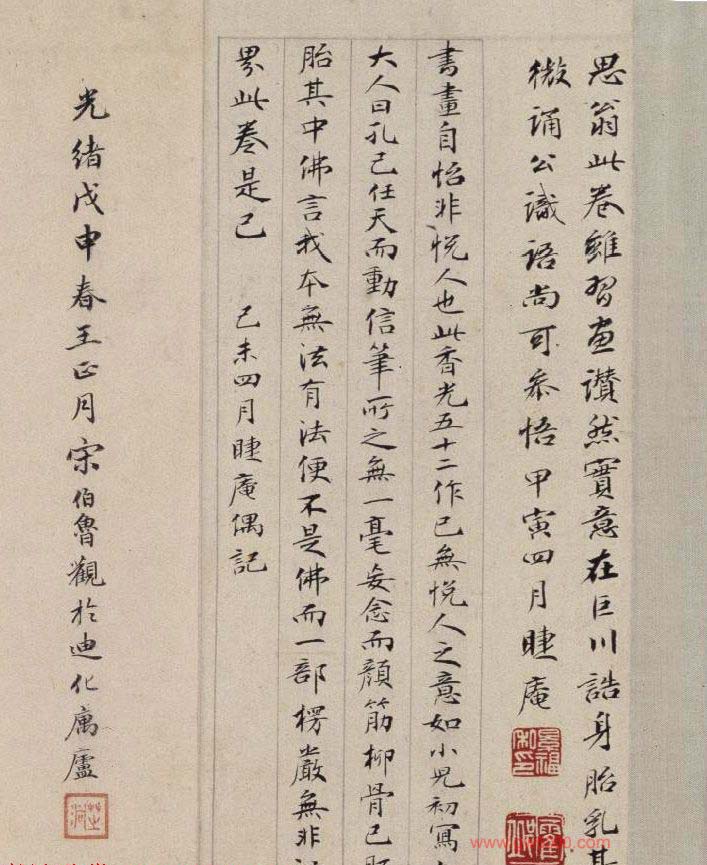 思翁此卷雖習畫讚然實意在巨川誥身胎乳其
微誦公識語尚可參悟甲寅四月睫庵
書畫自怡非悅人也此香光五十二作已無悅人之意如小兒初寫
大人曰孔已任天而動信筆所之無一毫妄念而顏筋柳骨已
胎其中佛言我本無法有法便不是佛而一部楞嚴無非
累此卷是已 己未四月睫庵偶記
光緒戊申春王正月宋伯魯觀於迪化寓廬